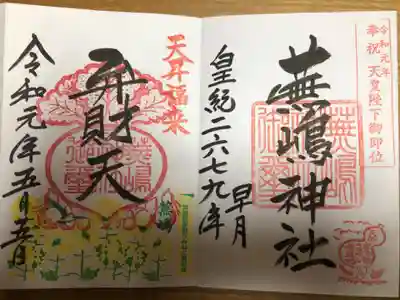 令和元年
奉祝 天皇陛下御即位
蕪嶋神社
皇紀二六七九年
早月
天昇福来
弁財天
令和元年五月五日